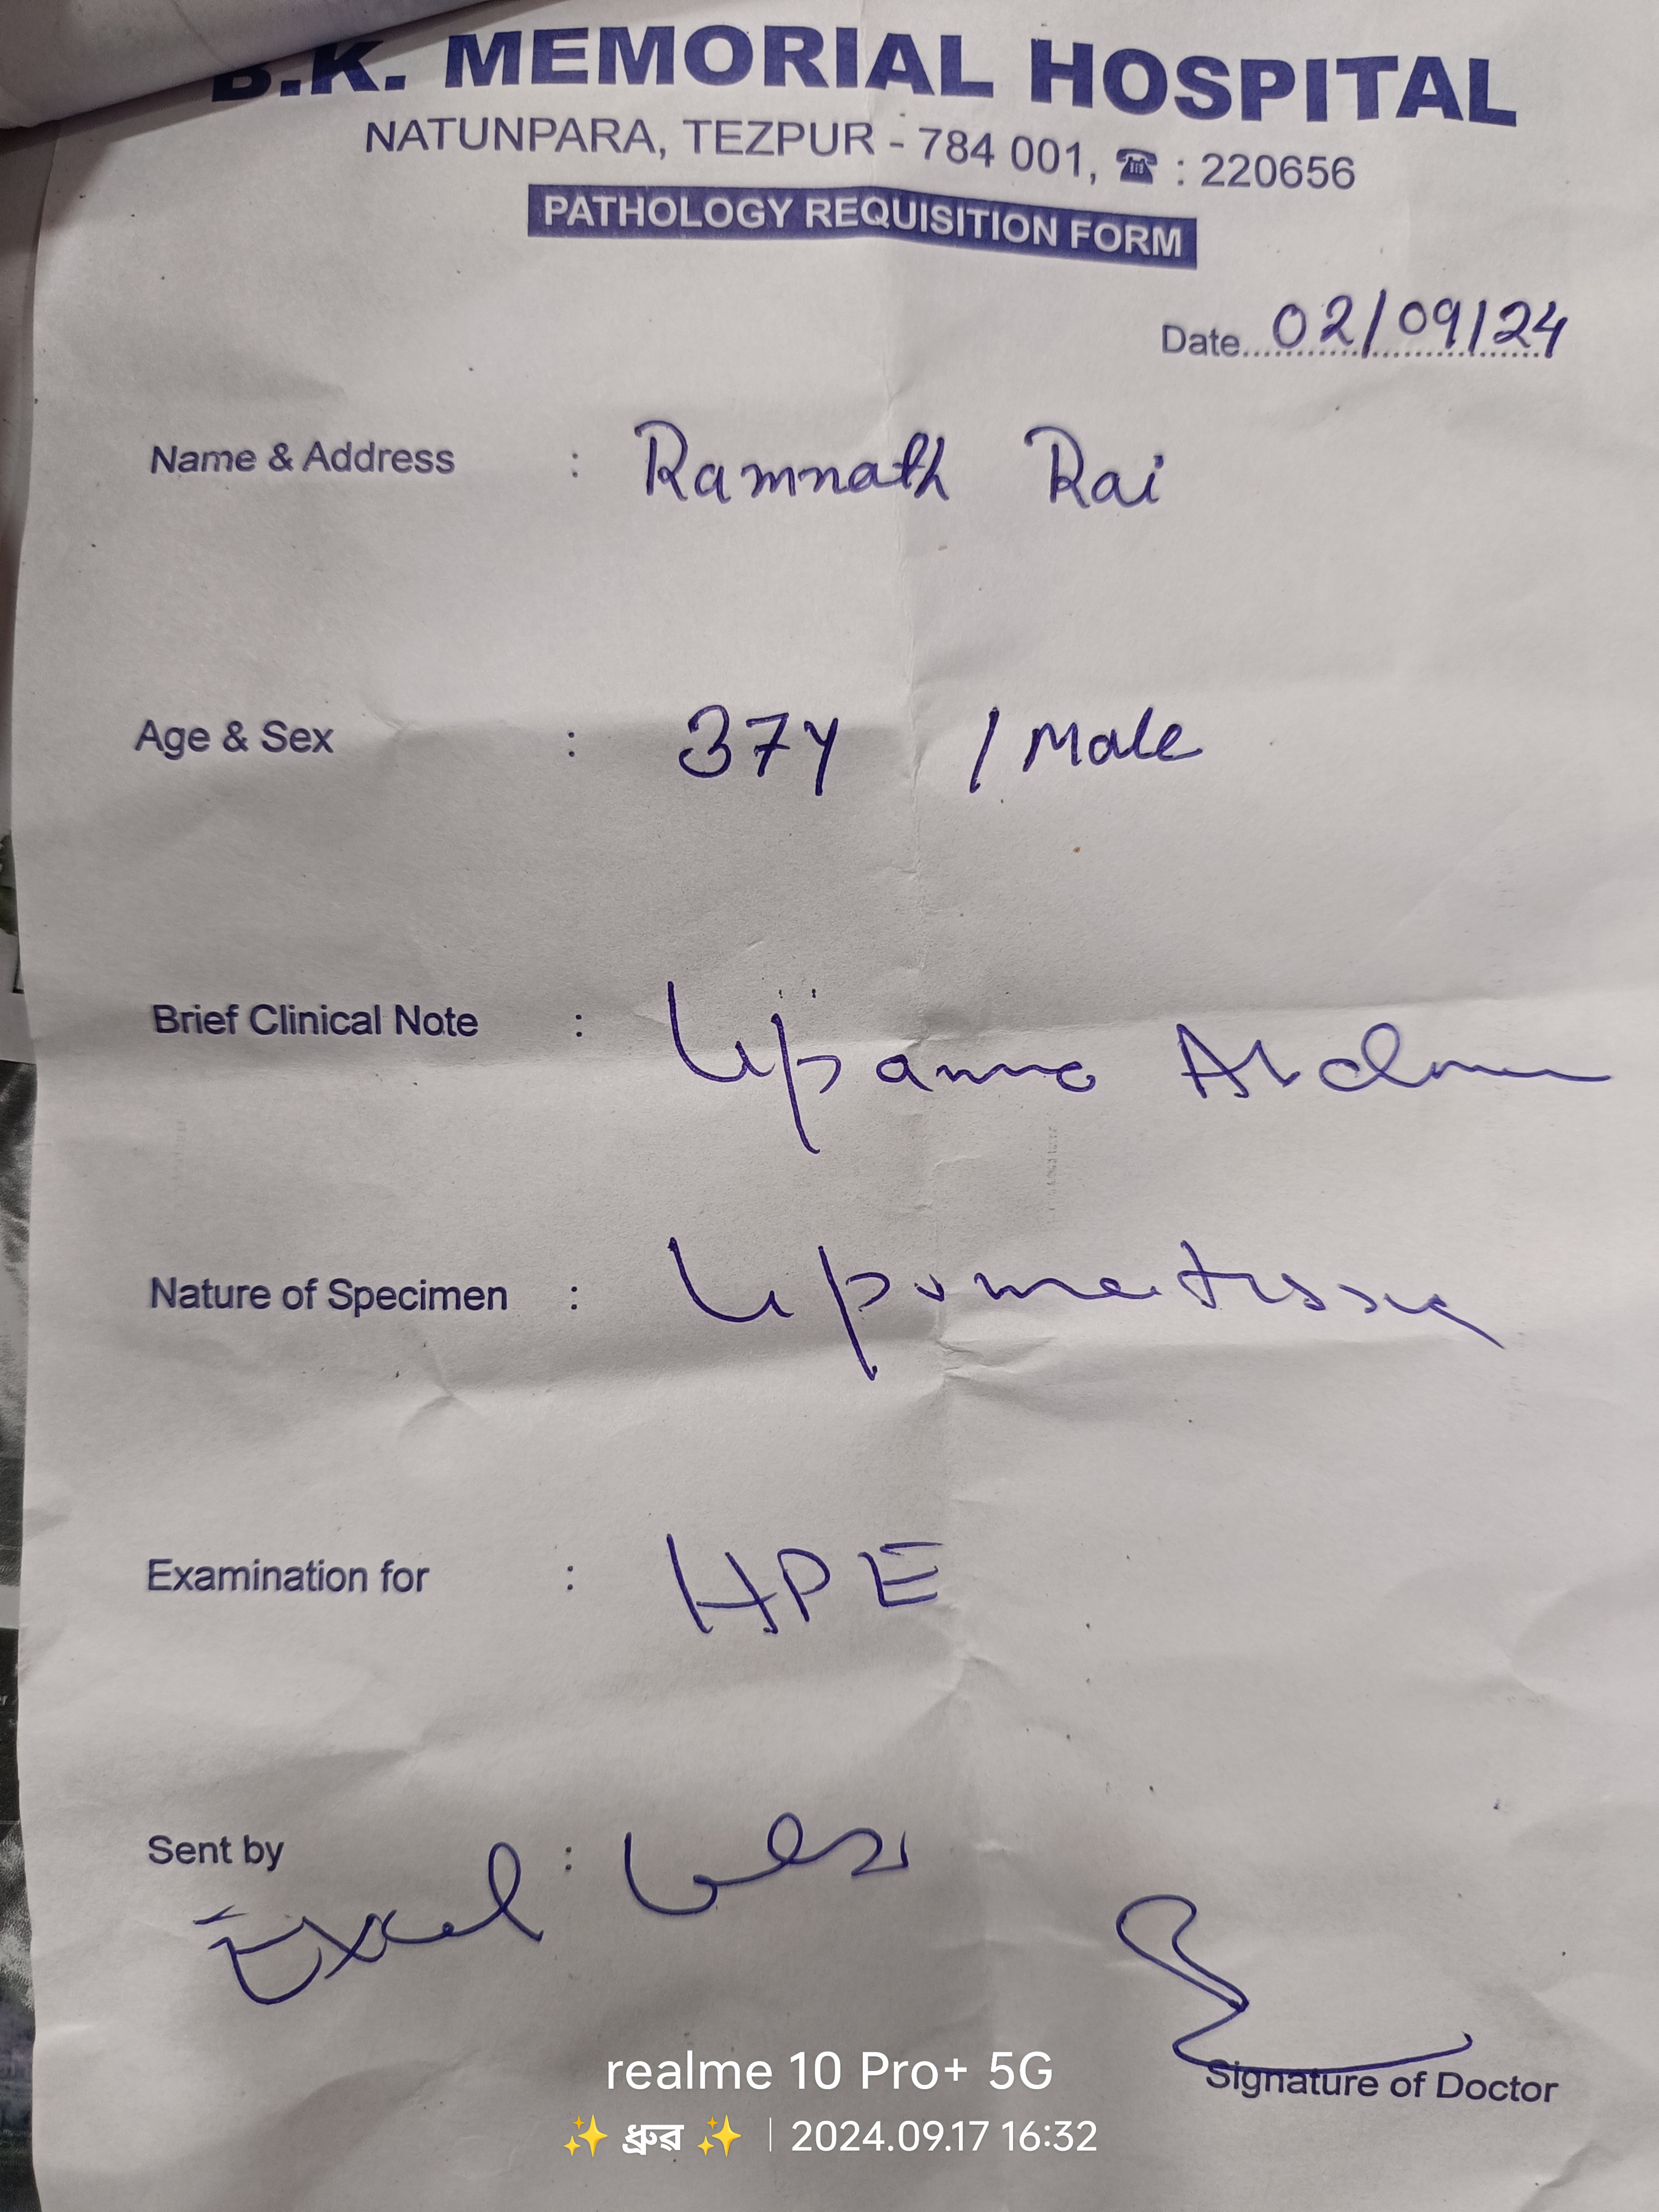 B.K. MEMORIAL HOSPITAL
NATUNPARA, TEZPUR - 784 001, ☎ : 220656
PATHOLOGY REQUISITION FORM
Date 02/09/24
Name & Address : Ramnath Rai
Age & Sex : 37y / Male
Brief Clinical Note :
Nature of Specimen : Lipoma tissue
Examination for : HPE
Sent by :
Excel
Signature of Doctor
realme 10 Pro+ 5G
✨ ধ্ৰুৱ ✨ | 2024.09.17 16:32